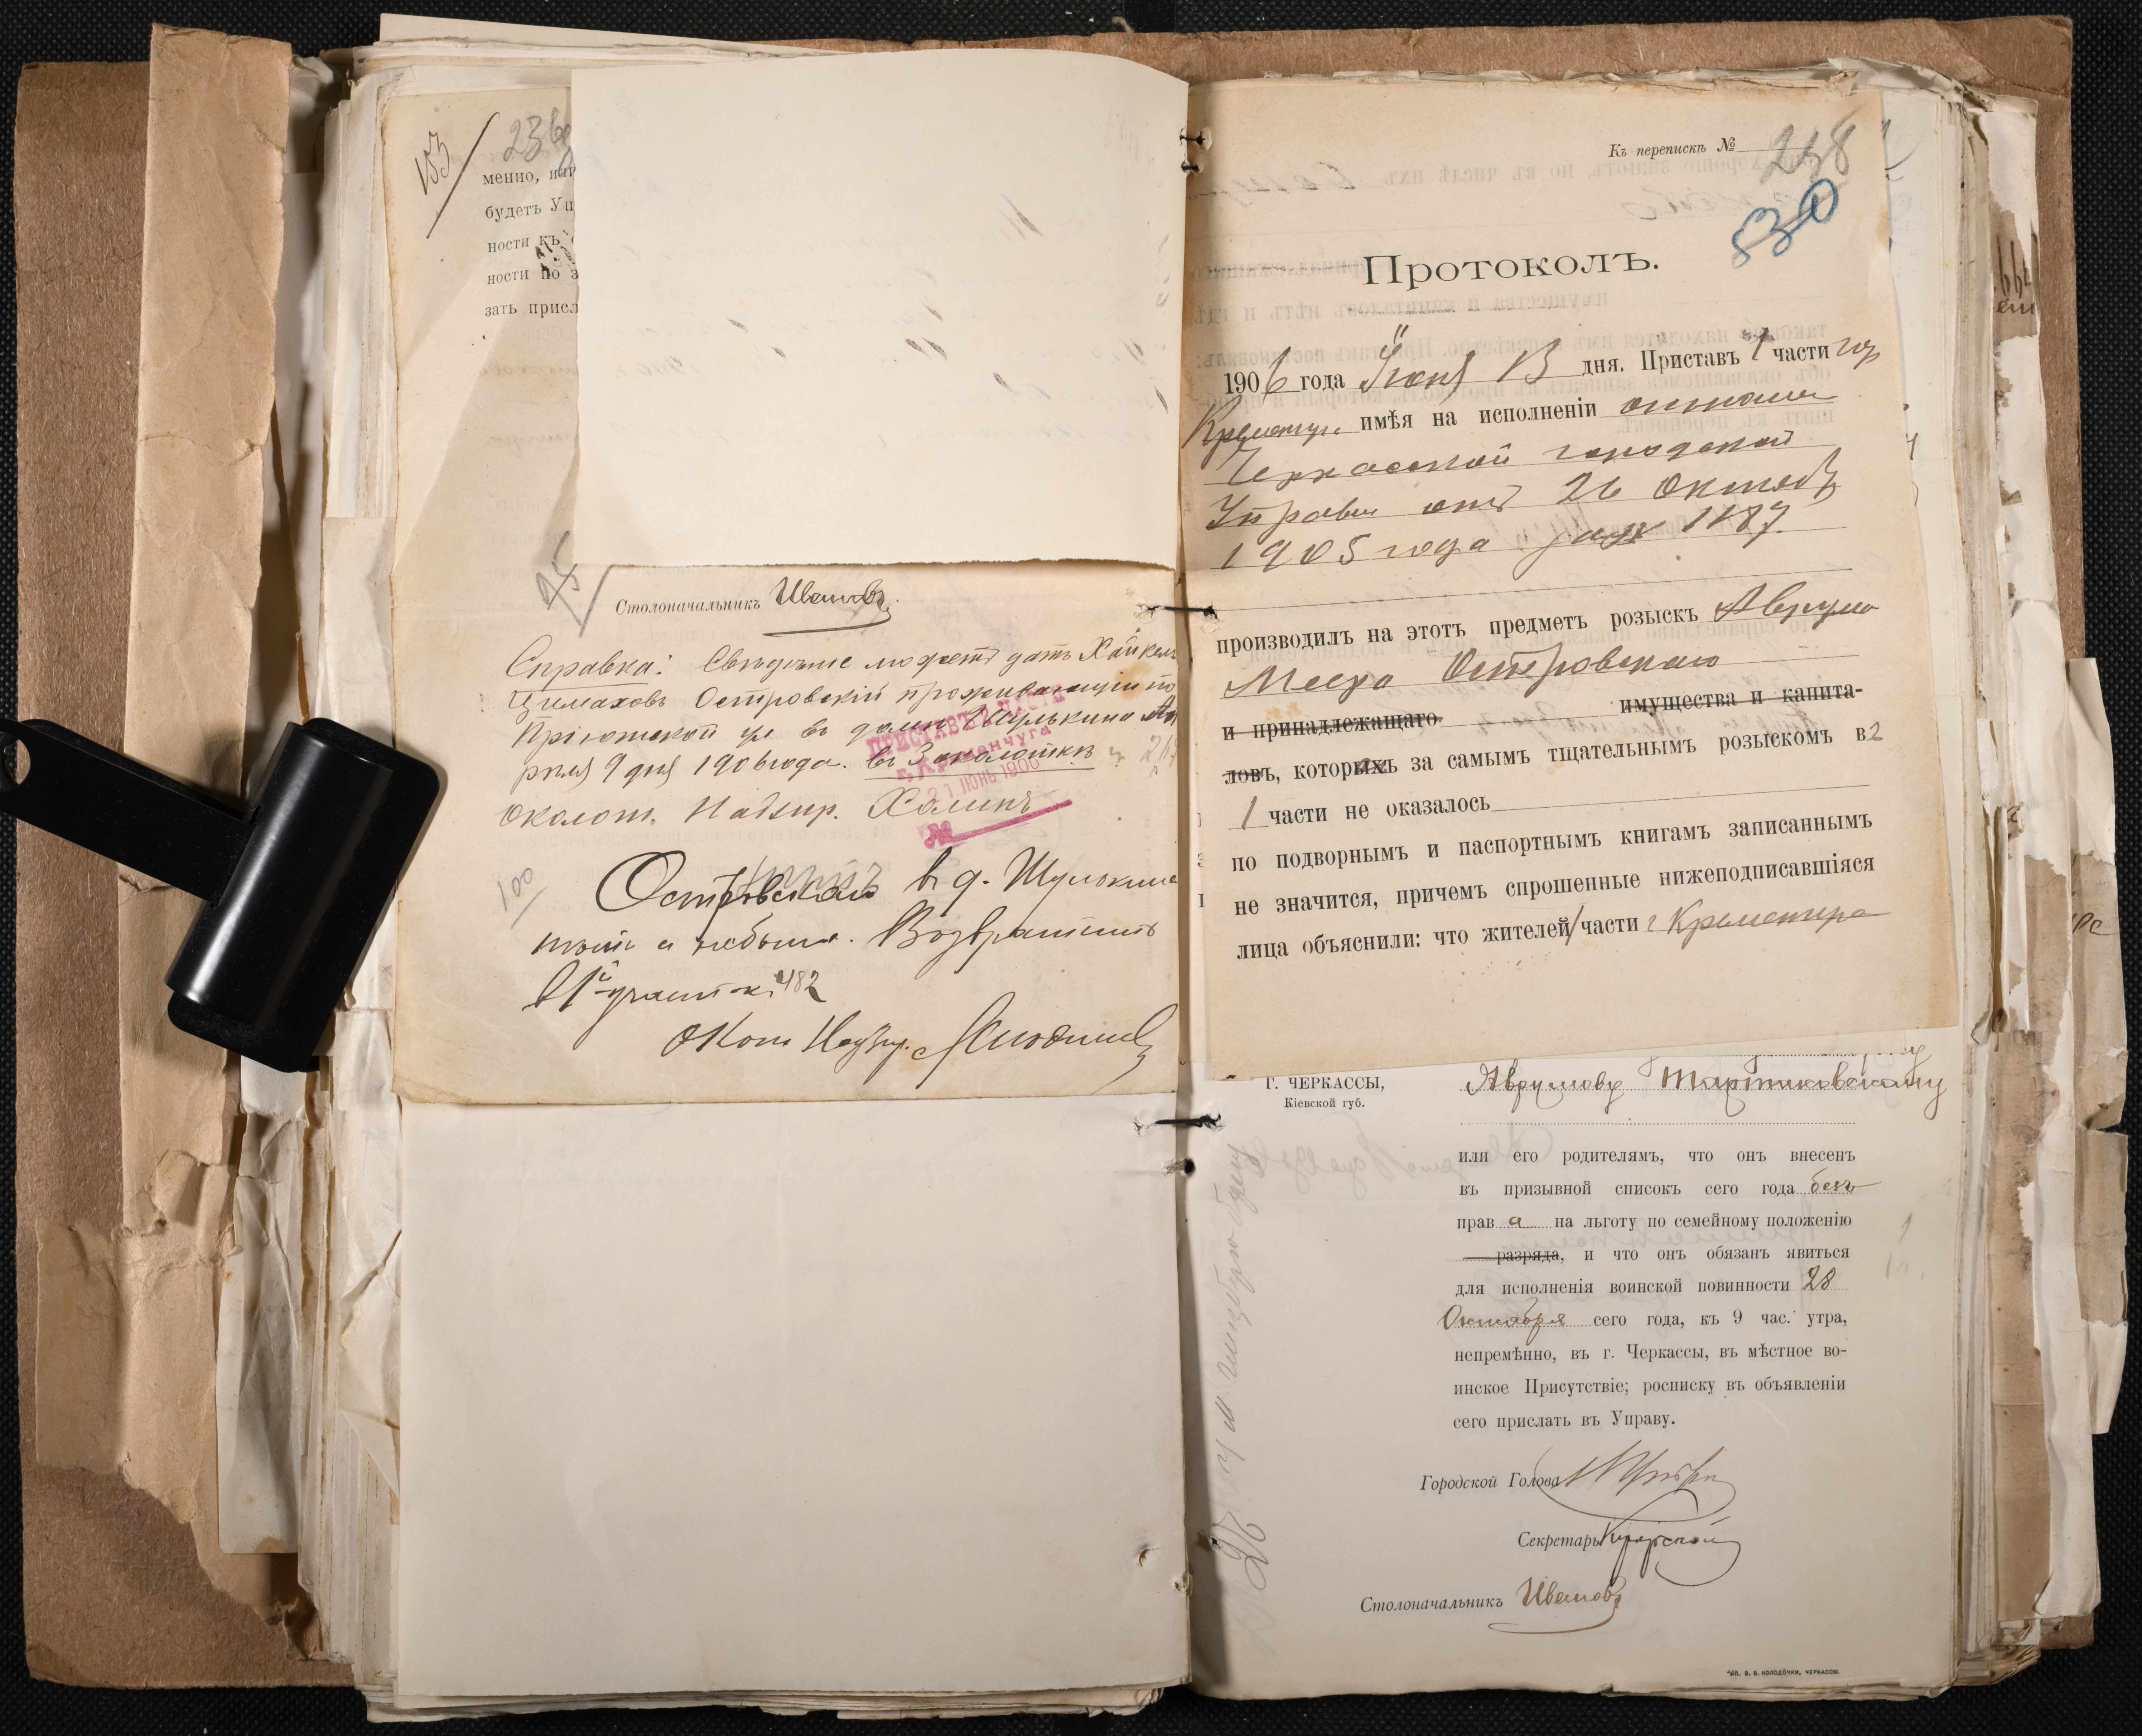 153
236
менно, и
будетъ Уп
ности къ
ности по з
зать присл
Столоначальникъ Ивановъ
Справка: Свѣдѣніе можетъ дать Хайкель
Цемаховъ Островскій проживающій по
Пріютской ул въ домѣ Шулькина Ап
рѣля 9 дня 1906 года. въ 3 околоткѣ
Околот. Надзир. Халинъ
ПРИСТАВЪ ЧАСТИ
г. Кременчуга
21 ІЮНЬ 1906
№
100
Островскаго въ д. Шулькина
нѣтъ и небыло. Возвратить
в 1й участокъ 482
Окол Надзир.
Къ перепискѣ № 248
530
Протоколъ.
1906 года Іюня 13 дня. Приставъ 1 части гор
Кременчуга имѣя на исполненіи отношеніе
Черкасской городской
Управы отъ 26 Октября
1905 года за № 1187.
производилъ на этотъ предметъ розыскъ Аврума
Меера Островскаго
и принадлежащаго имущества и капита-
ловъ, которыхъ за самымъ тщательнымъ розыскомъ въ
1 части не оказалось
по подворнымъ и паспортнымъ книгамъ записаннымъ
не значится, причемъ спрошенные нижеподписавшіяся
лица объяснили: что жителей 1 части г Кременчуга
Г. ЧЕРКАССЫ,
Кіевской губ.
Аврумову Тартаковскому
или его родителямъ, что онъ внесенъ
въ призывной списокъ сего года безъ
права на льготу по семейному положенію
разряда, и что онъ обязанъ явиться
для исполненія воинской повинности 28
Октября сего года, къ 9 час. утра,
непремѣнно, въ г. Черкассы, въ мѣстное во-
инское Присутствіе; росписку въ объявленіи
сего прислать въ Управу.
Городской Голова
Секретарь
Столоначальникъ Ивановъ
ТИП. В. В. КОЛОДОЧКИ, ЧЕРКАССЫ.